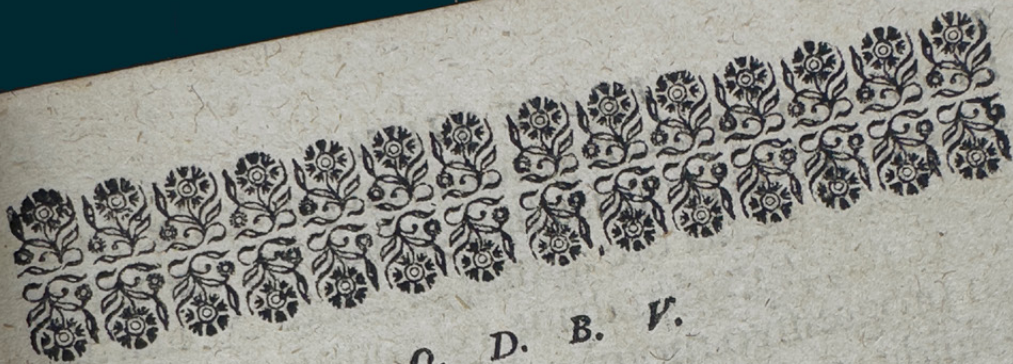 Q. D. B. V.